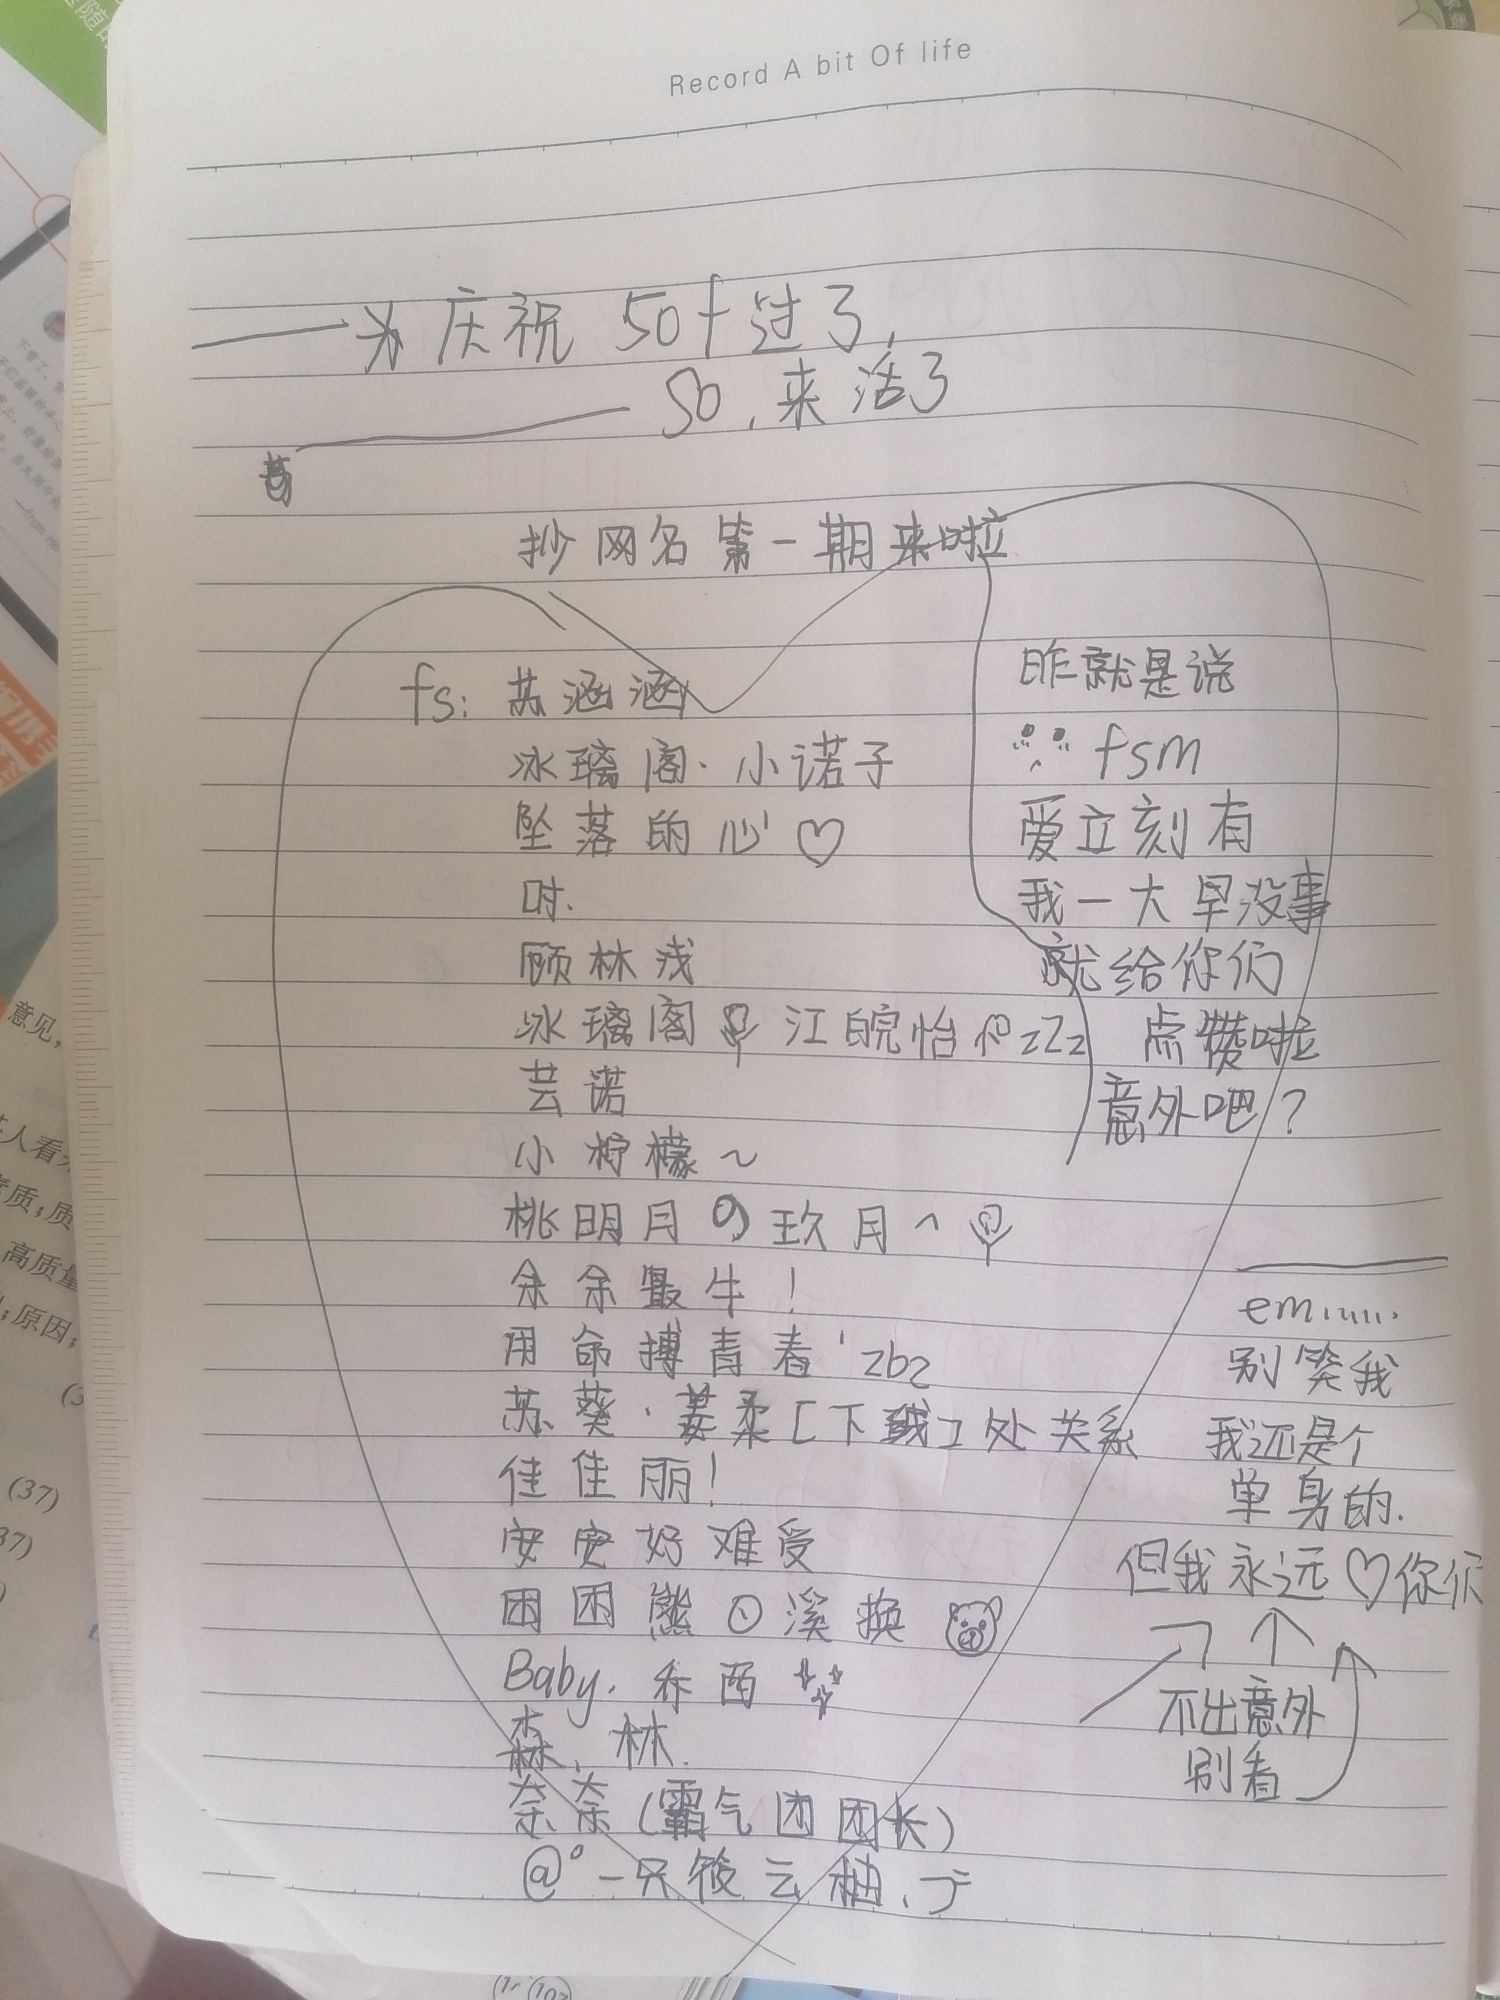 Record A bit Of life
为庆祝50f过了,
so,来活了
抄网名第一期来啦
fs:苏涵涵
冰璃阁·小诺子
坠落的心♡
时.
顾林浅
冰璃阁 江皖怡 zZz
芸诺
小柠檬~
桃明月 玖月^
余余最牛!
用命搏青春'zbz
苏葵·姜柔[下线]处关系
佳佳丽!
安安好难受
困困熊⊙溪换
Baby.乔西
森、林.
奈奈(霸气团团长)
@°一只筱云柚.
昨就是说
fsm
爱立刻有
我一大早没事
就给你们
点赞啦
意外吧?
em......
别笑我
我还是个
单身的.
但我永远♡你们
不出意外
别看
意见,
高质量
原因;
(37)